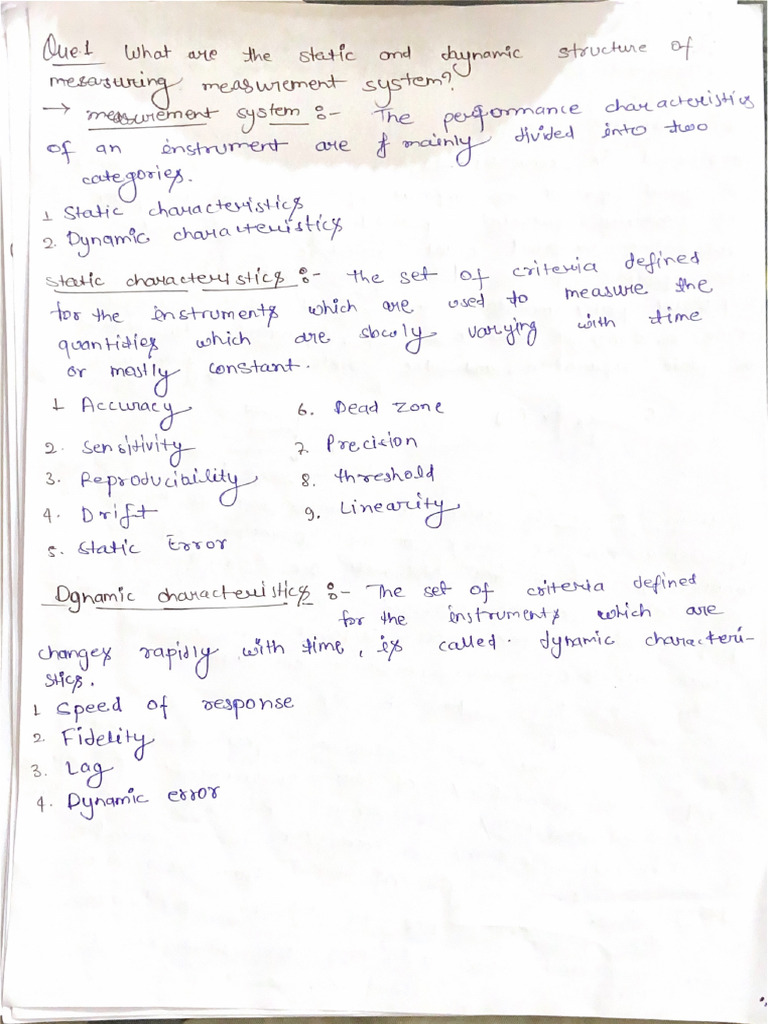 Que.1 What are the static and dynamic structure of
mesasuring measurement system?
→ measurement system :- The performance characteristics
of an instrument are mainly divided into two
categories.
1 Static characteristics
2. Dynamic characteristics
Static characteristics :- the set of criteria defined
for the instruments which are used to measure the
quantities which are slowly varying with time
or mostly constant.
1 Accuracy 6. Dead zone
2. Sensitivity 7. Precision
3. Reproducibility 8. threshold
4. Drift 9. Linearity
5. Static Error
Dynamic characteristics :- The set of criteria defined
for the instruments which are
changes rapidly with time, is called. dynamic characteri-
stics.
1 Speed of response
2. Fidelity
3. Lag
4. Dynamic error